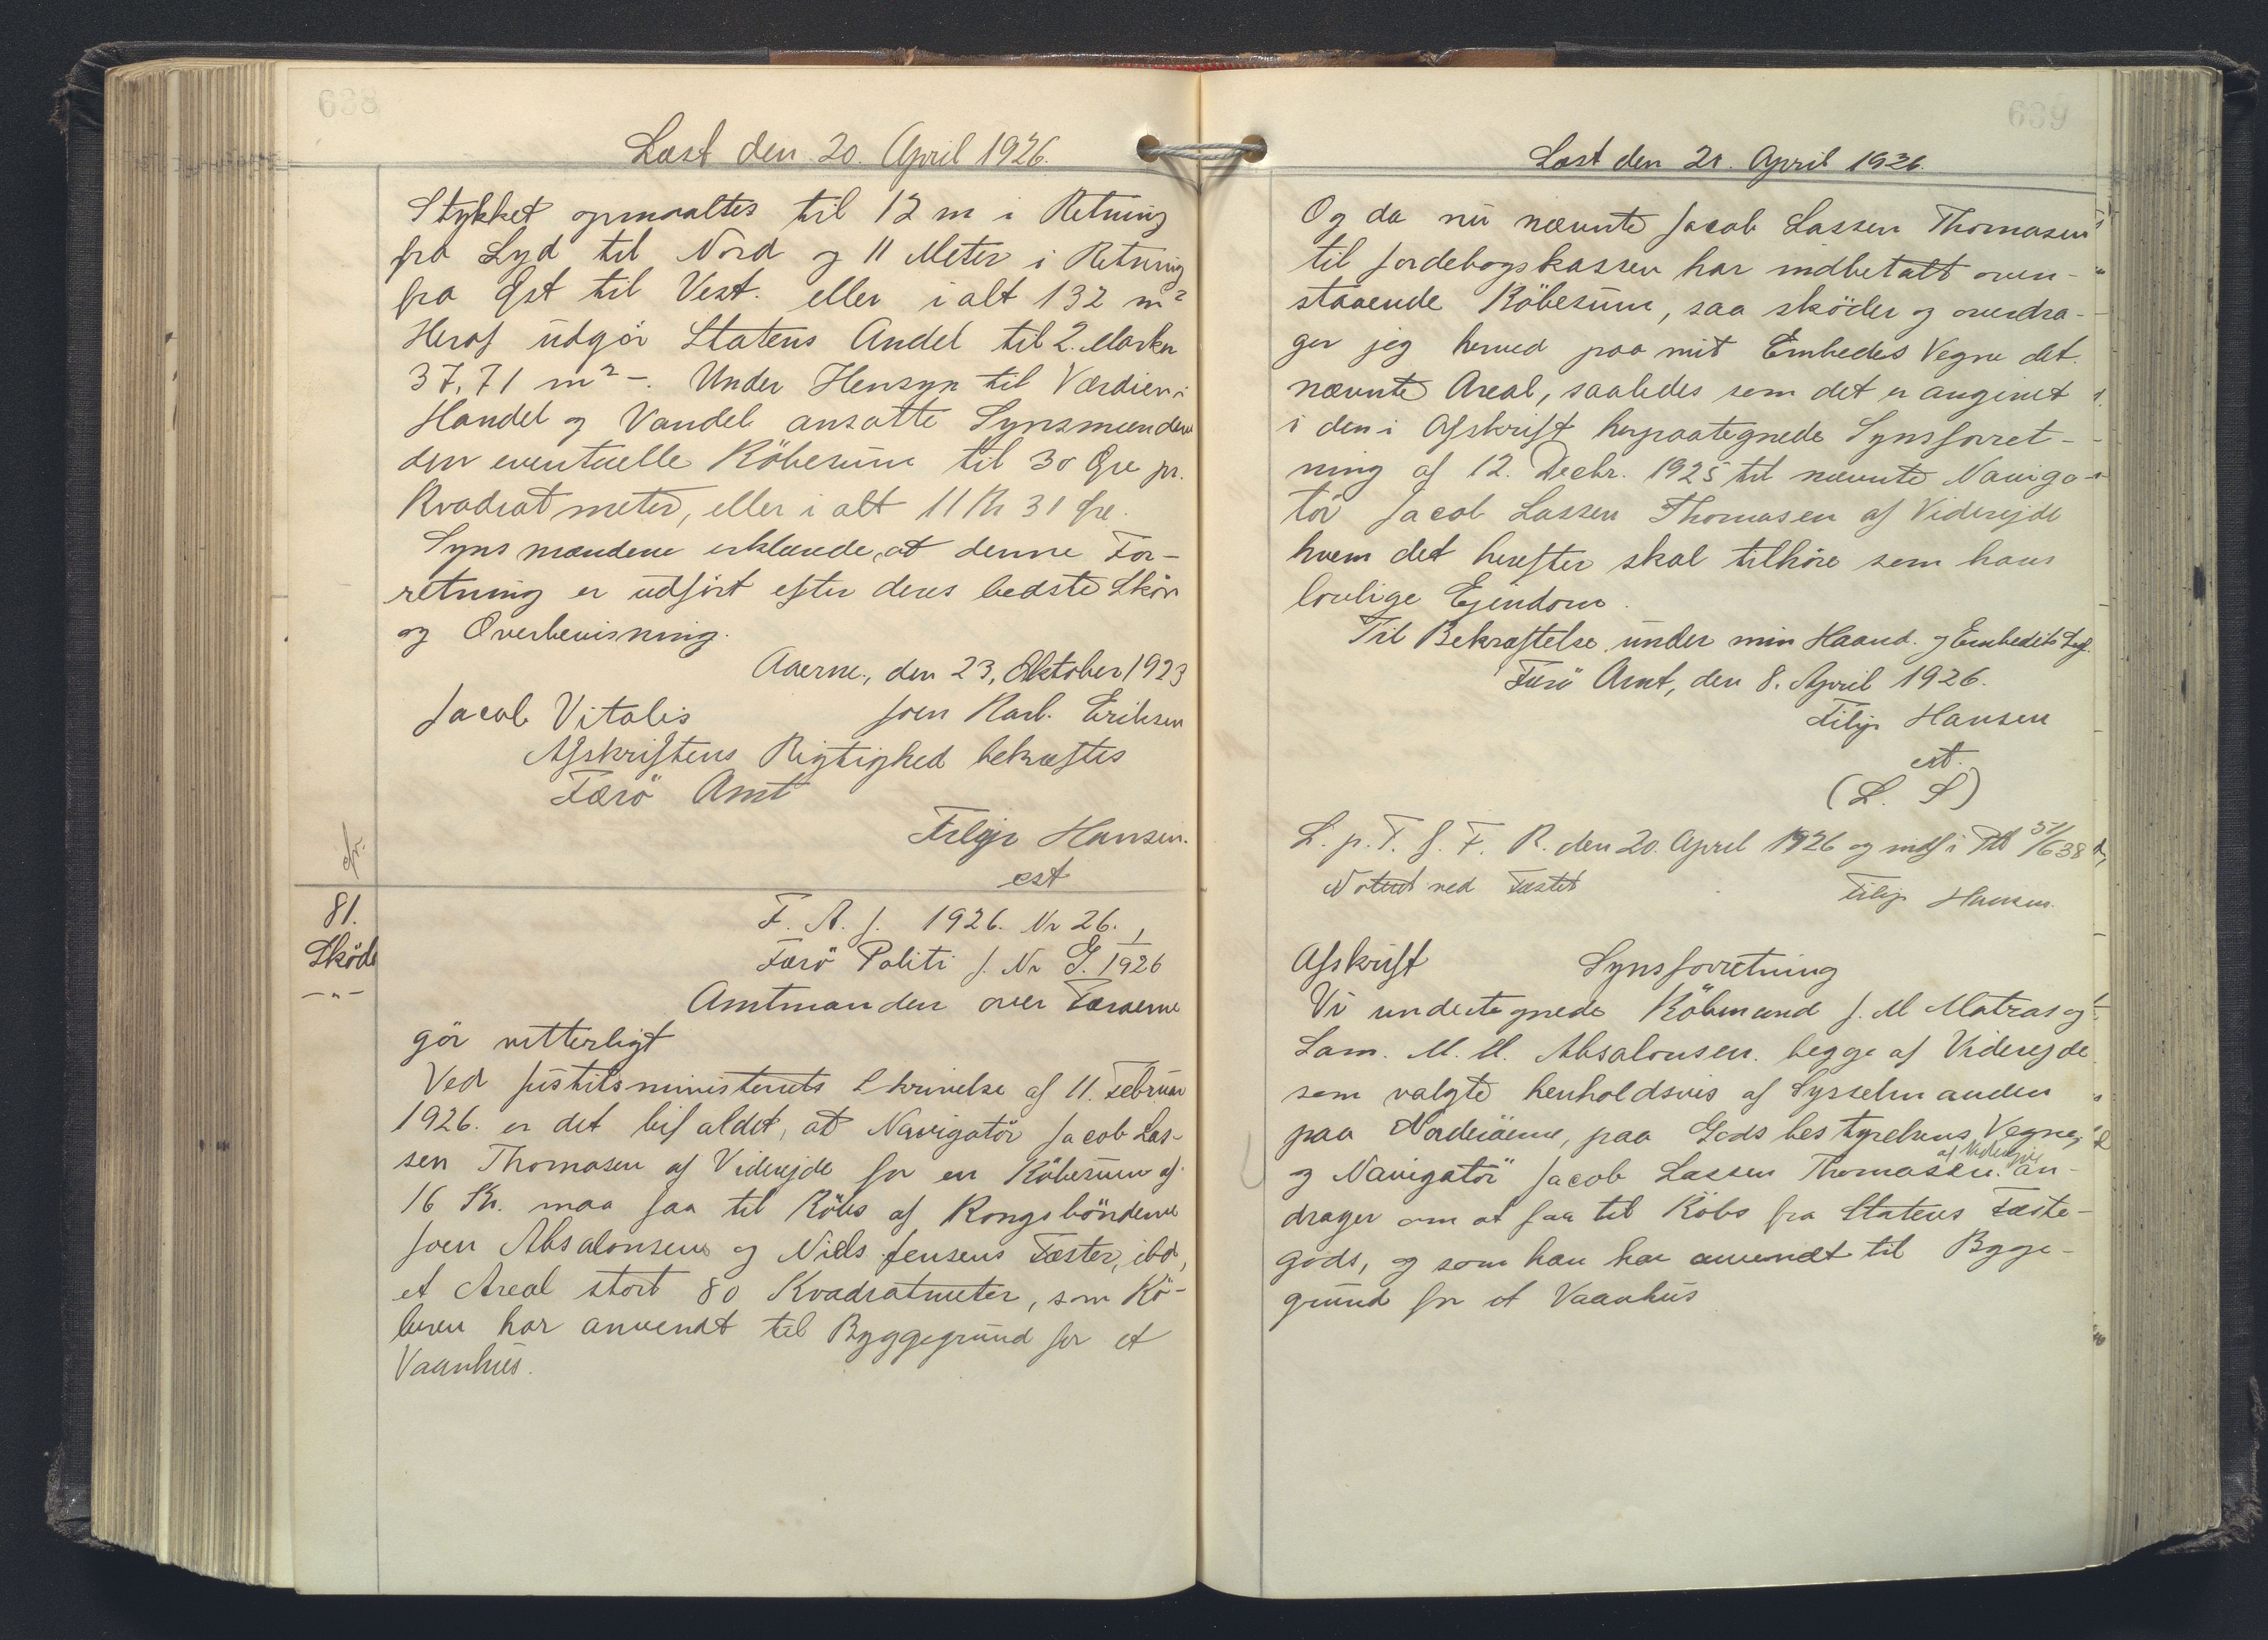 638
Læst den 20. April 1926.
Stykket opmaaltes til 12 m i Retning
fra Syd til Nord og 11 Meter i Retning
fra Øst til Vest. eller i alt 132 m²
Heraf udgör Statens Andel til 2. Marker
37,71 m² -. Under Hensyn til Værdien i
Handel og Vandel ansatte Synsmændene
den eventuelle Köbesum til 30 Øre pr.
Kvadratmeter, eller i alt 11 Kr 31 Øre.
Synsmændene erklærede, at denne For-
retning er udført efter deres bedste Skön
og Overbevisning.
Aaerne, den 23, Oktober 1923
Jacob Vitalis Joen Karl. Eriksen
Afskriftens Rigtighed bekræftes
Færö Amt
Filip Hansen.
cst
cfr.
81.
Sköde
-"-
F. A. J. 1926. Nr 26.
Færö Politi J. Nr G. 1/1926
Amtmanden over Færøerne
gör vitterligt
Ved Justitsministeriets Skrivelse af 11. Februar
1926. er det bifaldet, at Navigatör Jacob Las-
sen Thomasen af Viderejde for en Köbesum af
16 Kr. maa faa til Köbs af Kongsbönderne
Joen Absalonsens og Niels Jensens Fæster, ibd,
et Areal stort 80 Kvadratmeter, som Kö-
beren har anvendt til Byggegrund for et
Vaanhus.
639
Læst den 21. April 1926.
Og da nu nævnte Jacob Lassen Thomasen
til Jordebogskassen har indbetalt oven-
staaende Köbesum, saa sköder og overdra-
ger jeg herved paa mit Embedes Vegne det
nævnte Areal, saaledes som det er angivet
i den i Afskrift herpaategnede Synsforret-
ning af 12. Decbr. 1925 til nævnte Naviga-
tör Jacob Lassen Thomasen af Viderejde
hvem det herefter skal tilhöre som hans
lovlige Ejendom.
Til Bekræftelse under min Haand. og Embedets Segl.
Færö Amt, den 8. April 1926.
Filip Hansen
cst.
(L. S)
L. p. T. f. F. R. den 20. April 1926 og indf i Ptb 51/638
Noteret ved Fæstet
Filip Hansen.
Afskrift Synsforretning
Vi undertegnede Köbmand J. M Matras og
Sam. M. M. Absalonsen. begge af Viderejde
som valgte henholdsvis af Sysselmanden
paa Norderöerne, paa Godsbestyrelsens Vegne,
og Navigatör Jacob Lassen Thomasen. af Viderejde an-
drager om at faa til Köbs fra Statens Fæste-
gods, og som han har anvendt til Bygge-
grund for et Vaanhus